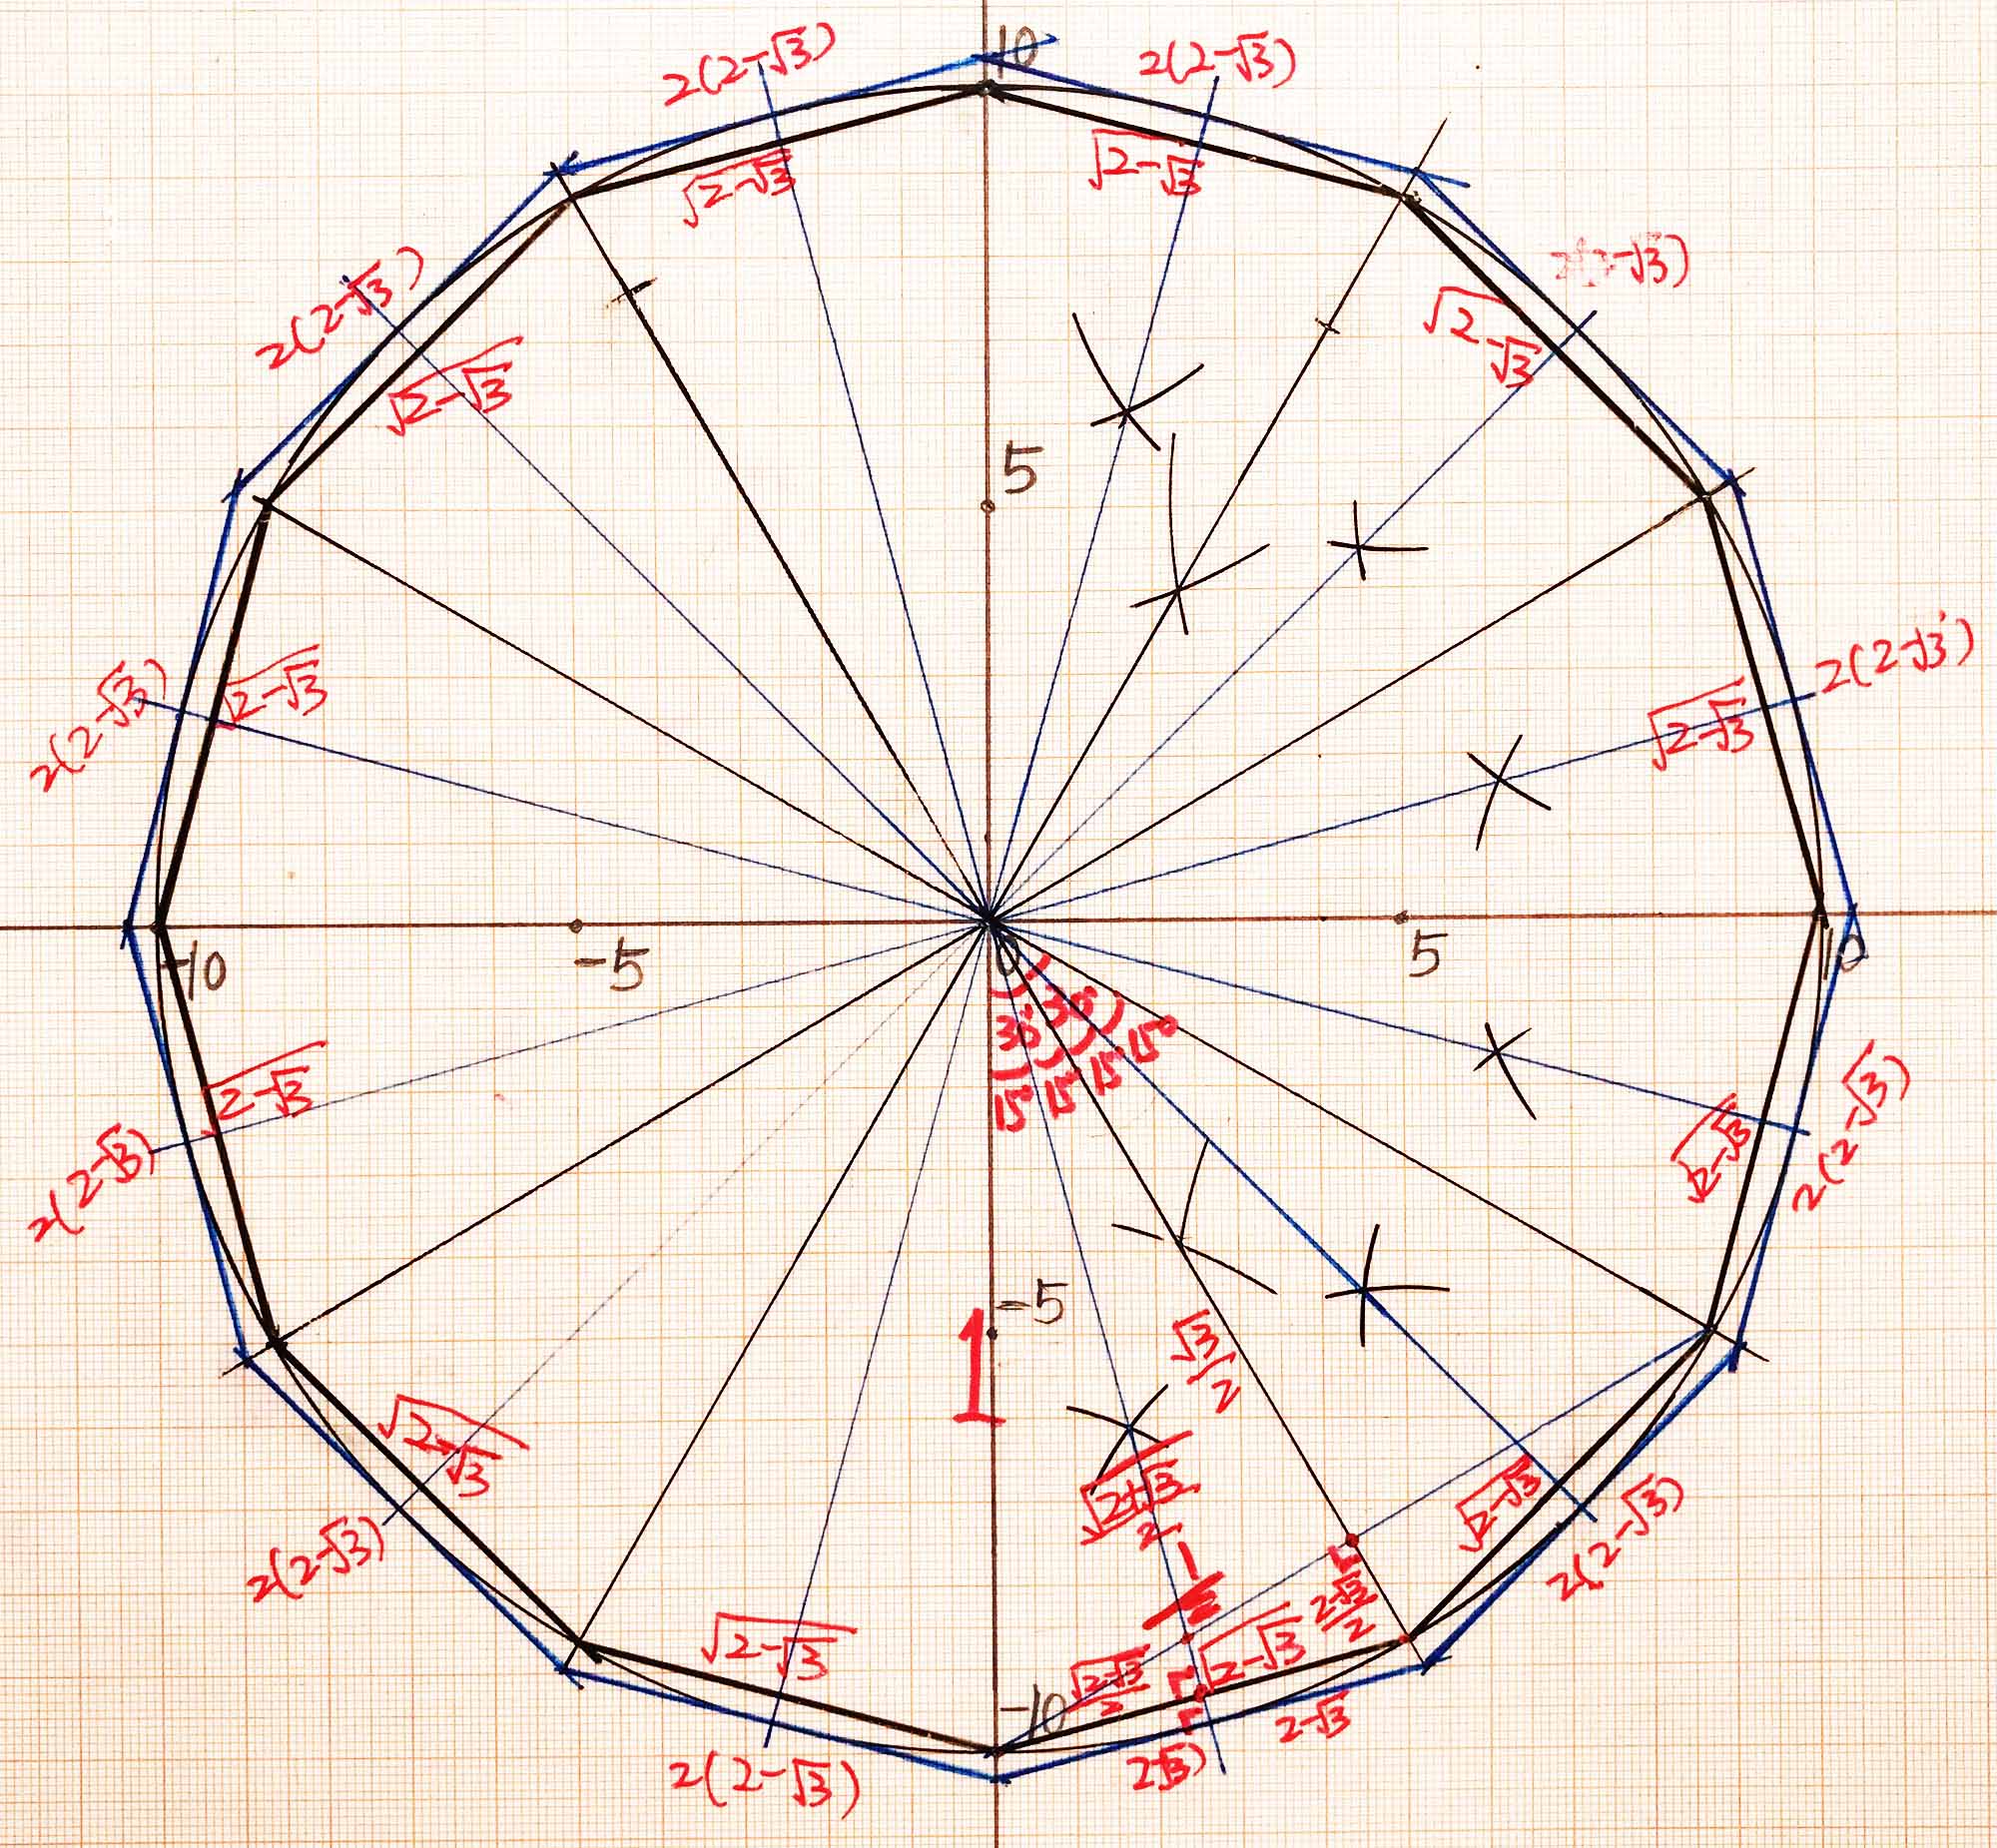 10
2(2-√3)
2(2-√3)
√2-√3
√2-√3
2(2-√3)
-√3)
√2-√3
√2-√3
5
2(2-√3)
√2-√3
√2-√3
2(2-√3)
-10
-5
0
5
10
30°
30°
15°
15°
15°
15°
√2-√3
2(2-√3)
√2-√3
2(2-√3)
-5
1
√3/2
√2-√3
2(2-√3)
√2+√3/2
√2-√3
2(2-√3)
1
2-√3/2
√2-√3
√2-√3
√2-√3/2
-10
2-√3
2-√3
2(2-√3)